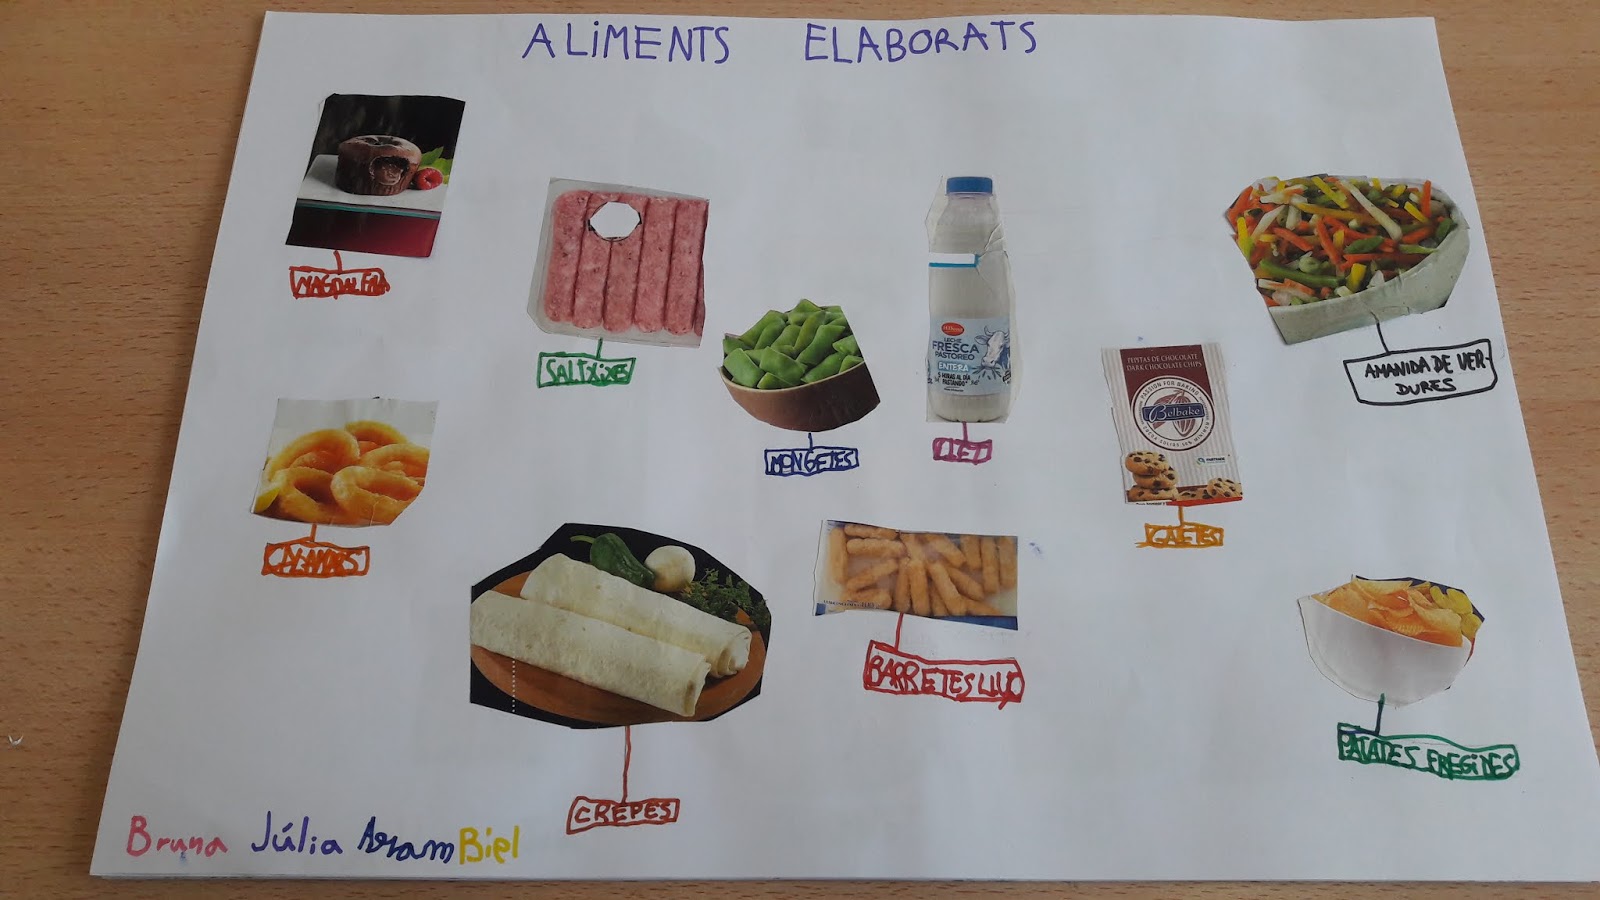 ALiMENTS ELABORATS
MAGDALENA
SALTXIXES
MONGETES
LLET
LECHE
FRESCA
PASTOREO
ENTERA
PASTANDO*
AMANIDA DE VER-
DURES
PEPITAS DE CHOCOLATE
DARK CHOCOLATE CHIPS
PASSION FOR BAKING
Belbake
GALETES
CALAMARS
CREPES
BARRETES LLUÇ
PATATES FREGIDES
Bruna Júlia Aram Biel